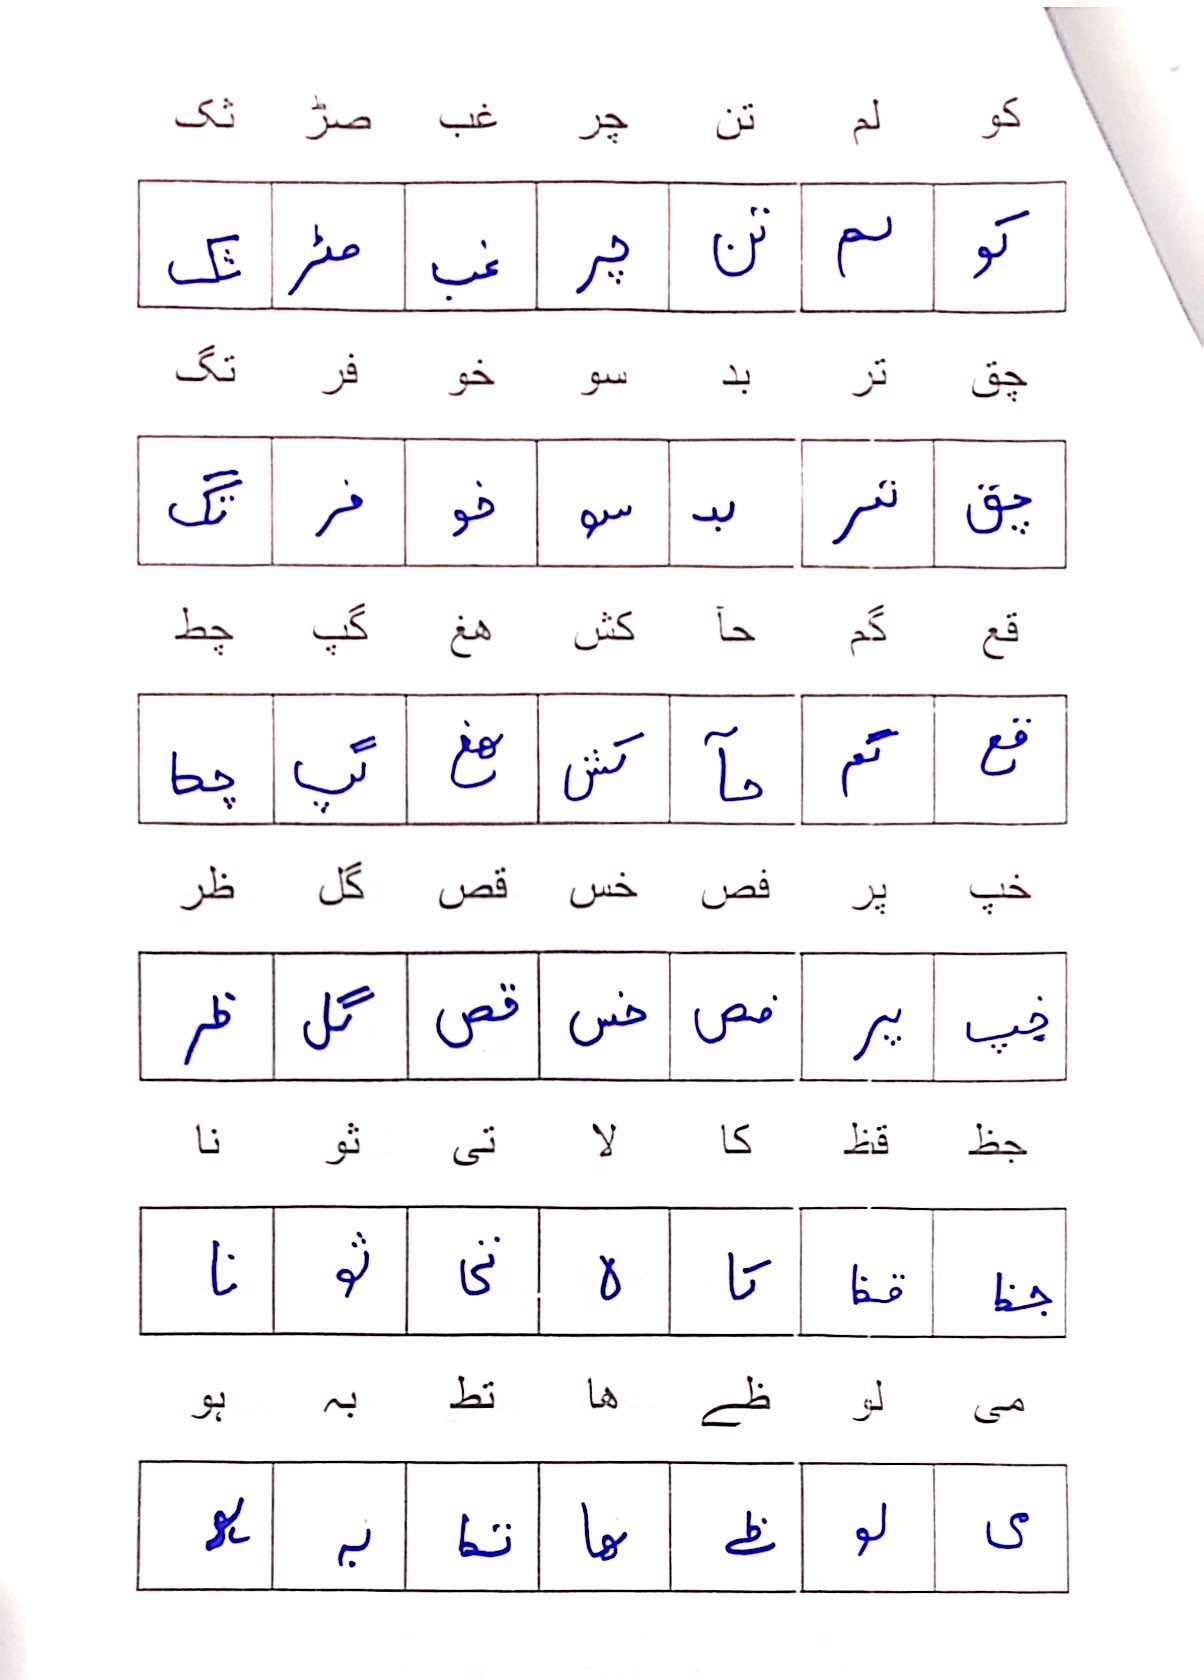 کو لم تن چر غب صڑ ثک
کو لم تن چر غب صڑ ثک
چق تر بد سو خو فر تگ
چق تر بد سو خو فر تگ
قع گم حآ کش هغ گپ چط
قع گم حآ کش هغ گپ چط
خپ پر فص خس قص گل ظر
خپ پر فص خس قص گل ظر
جظ قظ کا لا تی ثو نا
جظ قظ کا لا تی ثو نا
می لو ظے ها تط بہ ہو
می لو ظے ها تط بہ ہو